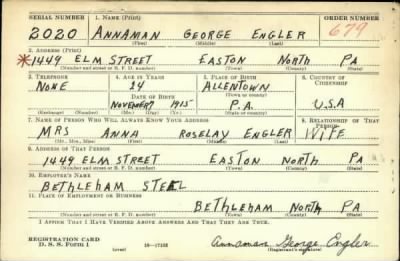 SERIAL NUMBER 1. NAME (Print) ORDER NUMBER
2020 ANNAMAN GEORGE ENGLER 679
(First) (Middle) (Last)
2. ADDRESS (Print)
*1449 ELM STREET EASTON NORTH PA
(Number and street or R. F. D. number) (Town) (County) (State)
3. TELEPHONE 4. AGE IN YEARS 5. PLACE OF BIRTH 6. COUNTRY OF CITIZENSHIP
NONE 24 ALLENTOWN
DATE OF BIRTH (Town or county)
NOVEMBER 1915 P.A. U.S.A
(Exchange) (Number) (Mo.) (Day) (Yr.) (State or country)
7. NAME OF PERSON WHO WILL ALWAYS KNOW YOUR ADDRESS 8. RELATIONSHIP OF THAT PERSON
MRS ANNA ROSELAY ENGLER WIFE
(Mr., Mrs., Miss) (First) (Middle) (Last)
9. ADDRESS OF THAT PERSON
1449 ELM STREET EASTON NORTH PA
(Number and street or R. F. D. number) (Town) (County) (State)
10. EMPLOYER'S NAME
BETHLEHAM STEEL
11. PLACE OF EMPLOYMENT OR BUSINESS
BETHLEHAM NORTH PA
(Number and street or R. F. D. number) (Town) (County) (State)
I AFFIRM THAT I HAVE VERIFIED ABOVE ANSWERS AND THAT THEY ARE TRUE.
REGISTRATION CARD
D. S. S. FORM 1 (over) 16—17105 Annaman George Engler
(Registrant's signature)